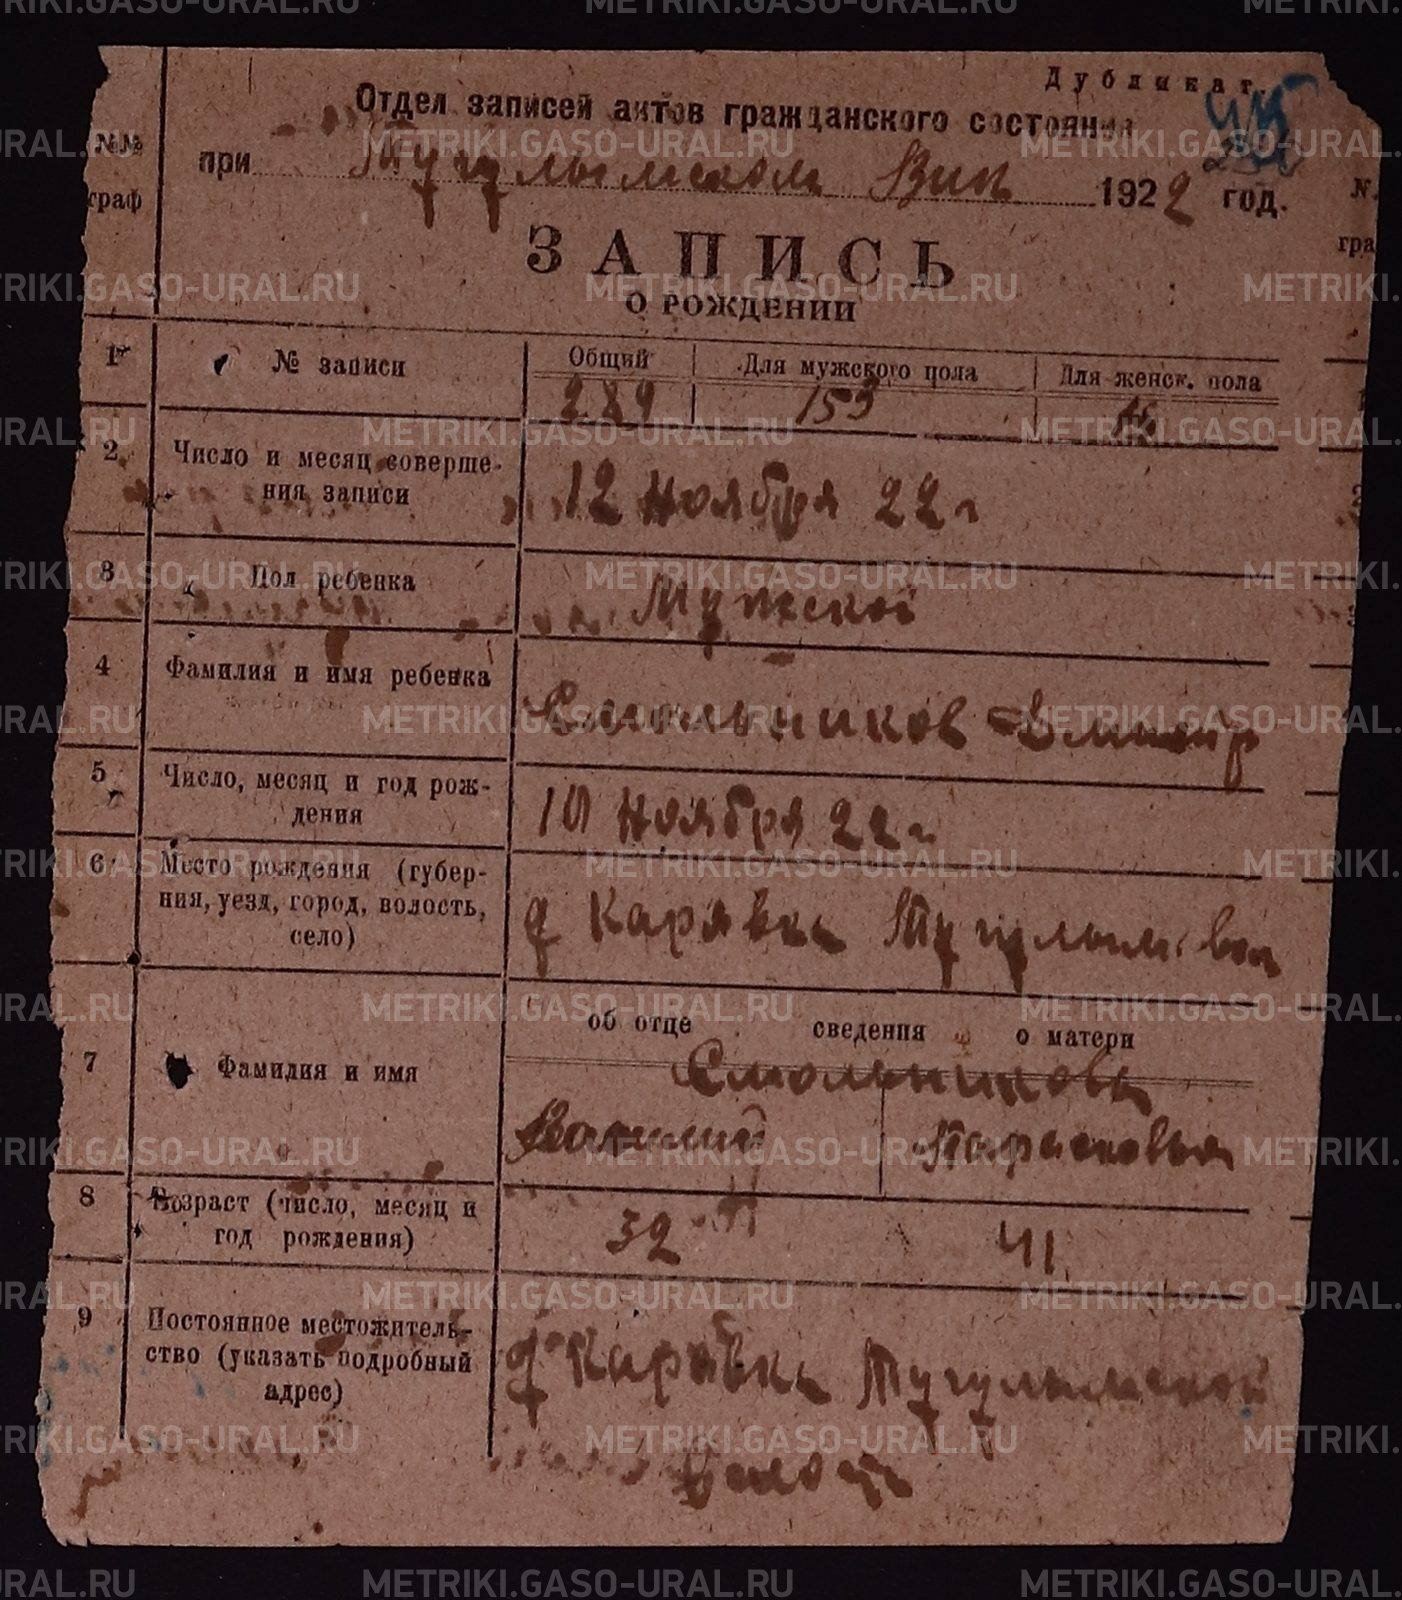 Дубликат.
Отдел записей актов гражданского состояния
№№ граф
при Тугулымском Вик 1922 год.
ЗАПИСЬ
О РОЖДЕНИИ
1 № записи Общий Для мужского пола Для женск. пола
289 153
2 Число и месяц соверше-
ния записи
12 Ноября 22 г
3 Пол ребенка Мужской
4 Фамилия и имя ребенка Смольников Дмитр
5 Число, месяц и год рож-
дения
10 Ноября 22 г
6 Место рождения (губер-
ния, уезд, город, волость,
село)
д Карявка Тугулым. вол
об отце сведения о матери
7 Фамилия и имя Смольникова
Василий Парасковья
8 Возраст (число, месяц и
год рождения)
32 41
9 Постоянное местожитель-
ство (указать подробный
адрес)
д Карявка Тугулымской
Волост
METRIKI.GASO-URAL.RU